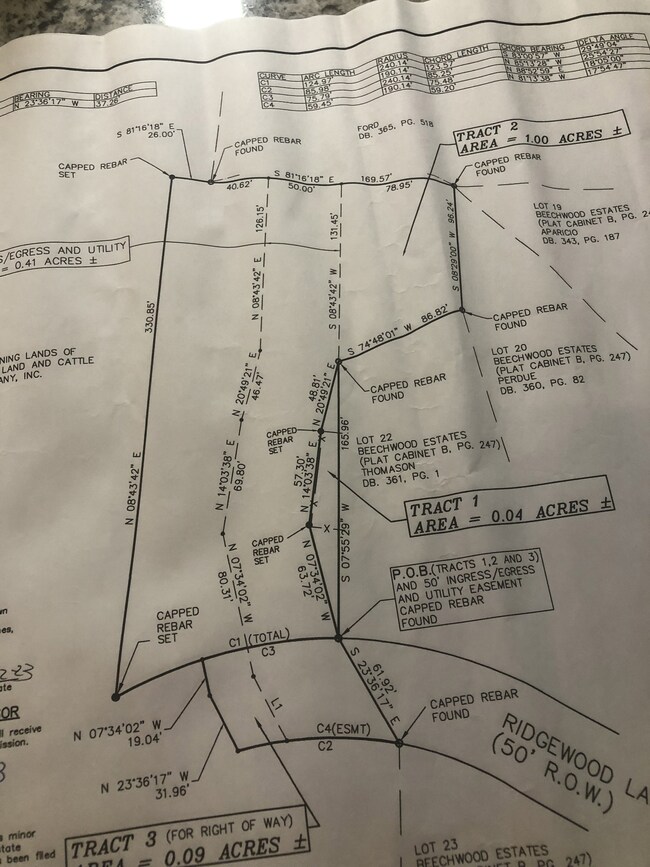 BEARING DISTANCE
N 23°36'17" W 37.26'
CURVE ARC LENGTH RADIUS CHORD LENGTH CHORD BEARING DELTA ANGLE
C1 124.97' 240.14' 123.57'
C2 85.98' 190.14' 85.25'
C3 75.79' 240.14' 75.48' N 88°52'59" 18°05'00"
C4 59.45' 190.14' 59.20' N 81°13'38" W 17°54'47"
S 81°16'18" E
26.00'
CAPPED REBAR
FOUND
CAPPED REBAR
SET
FORD
DB. 365, PG. 518
TRACT 2
AREA = 1.00 ACRES ±
CAPPED REBAR
FOUND
S 81°16'18" E 169.57'
40.62' 50.00' 78.95'
LOT 19
BEECHWOOD ESTATES
(PLAT CABINET B, PG. 24
APARICIO
DB. 343, PG. 187
S/EGRESS AND UTILITY
= 0.41 ACRES ±
126.15'
131.45'
S 08°29'00" W 96.24'
330.85'
N 08°43'42" E
S 08°43'42" W
S 74°48'01" W 86.82'
CAPPED REBAR
FOUND
NING LANDS OF
LAND AND CATTLE
ANY, INC.
LOT 20
BEECHWOOD ESTATES
(PLAT CABINET B, PG. 247)
PERDUE
DB. 360, PG. 82
N 20°49'21" E
46.47'
48.81'
N 20°49'21" E
CAPPED REBAR
FOUND
CAPPED
REBAR
SET
165.96'
LOT 22
BEECHWOOD ESTATES
(PLAT CABINET B, PG. 247)
THOMASON
DB. 361, PG. 1
N 08°43'42" E
N 14°03'38" E
69.80'
57.30'
N 14°03'38" E
X
TRACT 1
AREA = 0.04 ACRES ±
X
X
CAPPED
REBAR
SET
S 07°55'29" W
N 07°34'02" W
80.31'
N 07°34'02" W
63.72'
P.O.B.(TRACTS 1,2 AND 3)
AND 50' INGRESS/EGRESS
AND UTILITY EASEMENT
CAPPED REBAR
FOUND
CAPPED
REBAR
SET
C1 (TOTAL)
C3
61.92'
S 23°36'17" E
L1
CAPPED REBAR
FOUND
N 07°34'02" W
19.04'
C4(ESMT)
C2
RIDGEWOOD LA
(50' R.O.W.)
N 23°36'17" W
31.96'
ate
OR
ll receive
ission.
s minor
tate
been filed
TRACT 3 (FOR RIGHT OF WAY)
AREA = 0.09 ACRES ±
LOT 23
BEECHWOOD ESTATES
(PLAT CABINET B, PG. 247)